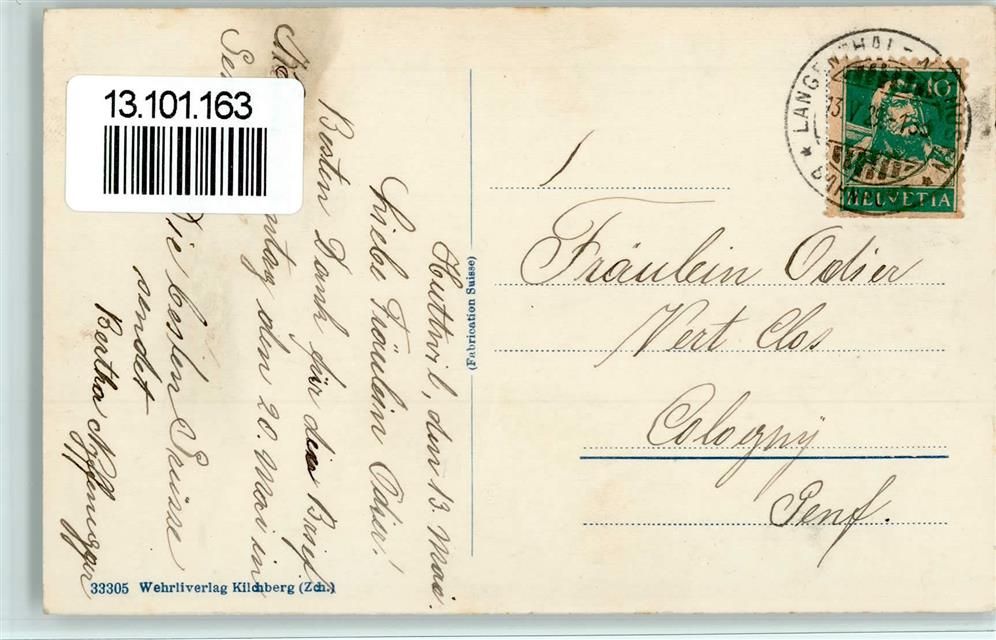 13.101.163
Huttwil, den 13. Mai.
Liebe Fräulein Odier!
Besten Dank für die Brief.
ntag den 20. Mai in
Die besten Grüsse
sendet
Bertha Nyffenegger
33305 Wehrliverlag Kilchberg (Zch.)
(Fabrication Suisse)
LANGENTHAL
13.V.
10
HELVETIA
Fräulein Odier
Vert Clos
Cologny
Genf.